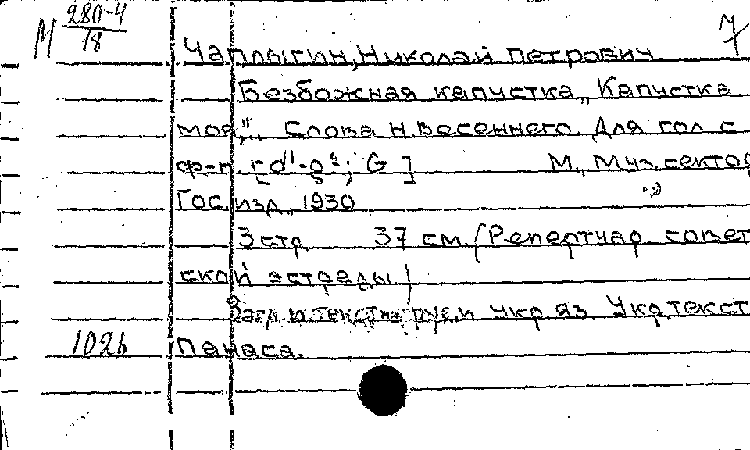 М 280-4
18
7
Чаплыгин, Николай Петрович
Безбожная капустка „Капустка
моя"... Слова Н. Весеннего. Для гол с
ф-п. [d¹-g²; G] М., Муз. сектор
Гос. изд. 1930
3 стр 37 см. (Репертуар совет
ской эстрады)
Загл. и текст на рус. и укр яз. Укр. текст
102Б Панаса.